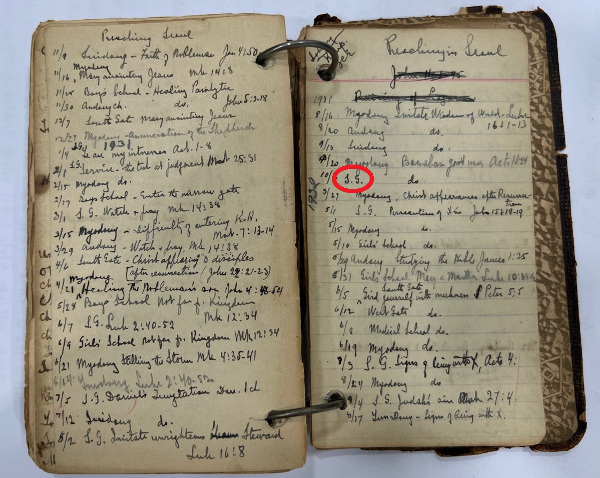 Preaching Seoul
11/9 Sindang - Faith of Nobleman Jn 4:50
Myodong
11/16, Mary anointing Jesus Mk 14:8
11/23 Boy's School - Healing Paralytic
11/30 Andongch. do. John 5:2-18
12/7 South Gate Mary anointing Jesus
Myodong - Annunciation of the Shepherds
1931
S.G. Ye are my witnesses Acts 1-8
2/1 S.G. Service - the test at judgment Matt 25:31
2/15 Myodong do.
2/27 Boys School - Enter the narrow gate
3/1 S.G. Watch & pray Mk. 14:38
3/15 Myodong - Difficulty of entering K.H.
Matt. 7:13-14
3/29 Andong - Watch & pray Mk 14:38
4/6 South Gate - Christ appearing disciples
after resurrection (John 21-23)
4/21 Myodong
Healing the Nobleman's son John 4:48-54
5/24 Boys School Not far fr. Kingdom
Mk 12:34
6/7 S.G. Luk 2:40-52
6/9 Girls School not far fr. Kingdom Mk 12:34
6/21 Myodong Stilling the Storm Mk 4:35-41
6/28 Sindang Luke 2:40-52
7/5 S.G. Daniel's Temptation Dan. 1 ch
7/12 Sindang do.
8/2 S.G. Imitate unrighteous Steward
Luk 16:8
Preaching in Seoul
1931
8/16 Myodong Imitate Wisdom of World - Luke
16:1-13
8/20 Andong do.
9/13 Sindang do.
9/20 Myodong Barabas good man Acts 11:24
S.G. do.
1932
3/27 Myodong, Christ appearance after Resurrection
5/1 S.G. Persecution of John 15:18-19
5/15 Myodong do.
5/10 Girls' School do.
5/29 Andong Studying the Bible James 1:25
5/31 Girls' School Mary & Martha Luk 10:38
South Gate
6/5 Gird yourself with meekness I Peter 5:5
6/12 West Gate do.
6/8 Medical School do.
6/19 Myodong do.
8/3 S.G. Signs of being with X, Acts 4:
8/24 Myodong do.
9/4 S.G. Judah's sin Matt 27:4.
Signs of being with X.